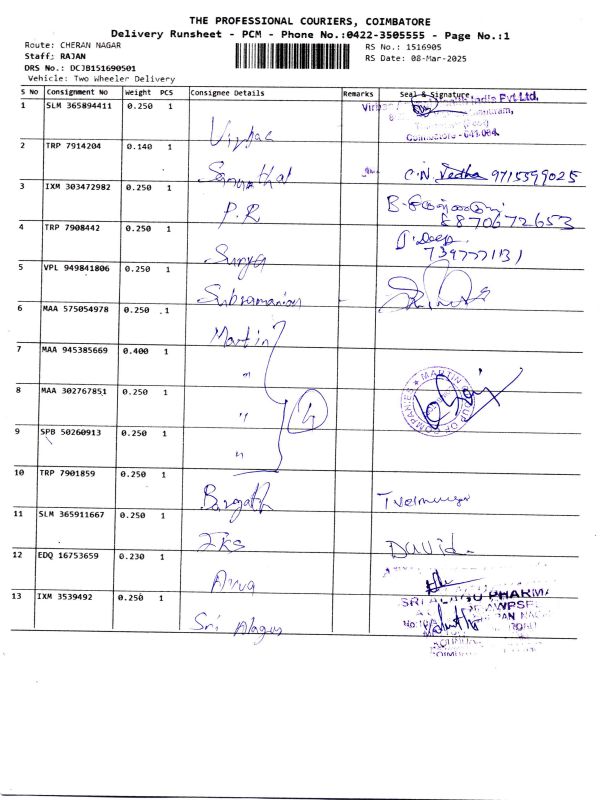 THE PROFESSIONAL COURIERS, COIMBATORE
Delivery Runsheet - PCM - Phone No.:0422-3505555 - Page No.:1
Route: CHERAN NAGAR
RS No.: 1516905
Staff: RAJAN
RS Date: 08-Mar-2025
DRS No.: DCJB151690501
Vehicle: Two Wheeler Delivery
S No Consignment No Weight PCS Consignee Details Remarks Seal & Signature
1 SLM 365894411 0.250 1
Pvt Ltd.
Coimbatore - 641 004.
2 TRP 7914204 0.140 1 C.N. Vedha 9715599025
3 IXM 303472982 0.250 1 P.R
8870672653
4 TRP 7908442 0.250 1 Surya J. Deep
7397771131
5 VPL 949841806 0.250 1 Subramanian
6 MAA 575054978 0.250 1 Martin
7 MAA 945385669 0.400 1 "
8 MAA 302767851 0.250 1 " 4 MARTIN GROUP OF COMPANIES
9 SPB 50260913 0.250 1 "
10 TRP 7901859 0.250 1
11 SLM 365911667 0.250 1 David
12 EDQ 16753659 0.230 1
13 IXM 3539492 0.250 1 Sri Alagu
SRI PHARMA